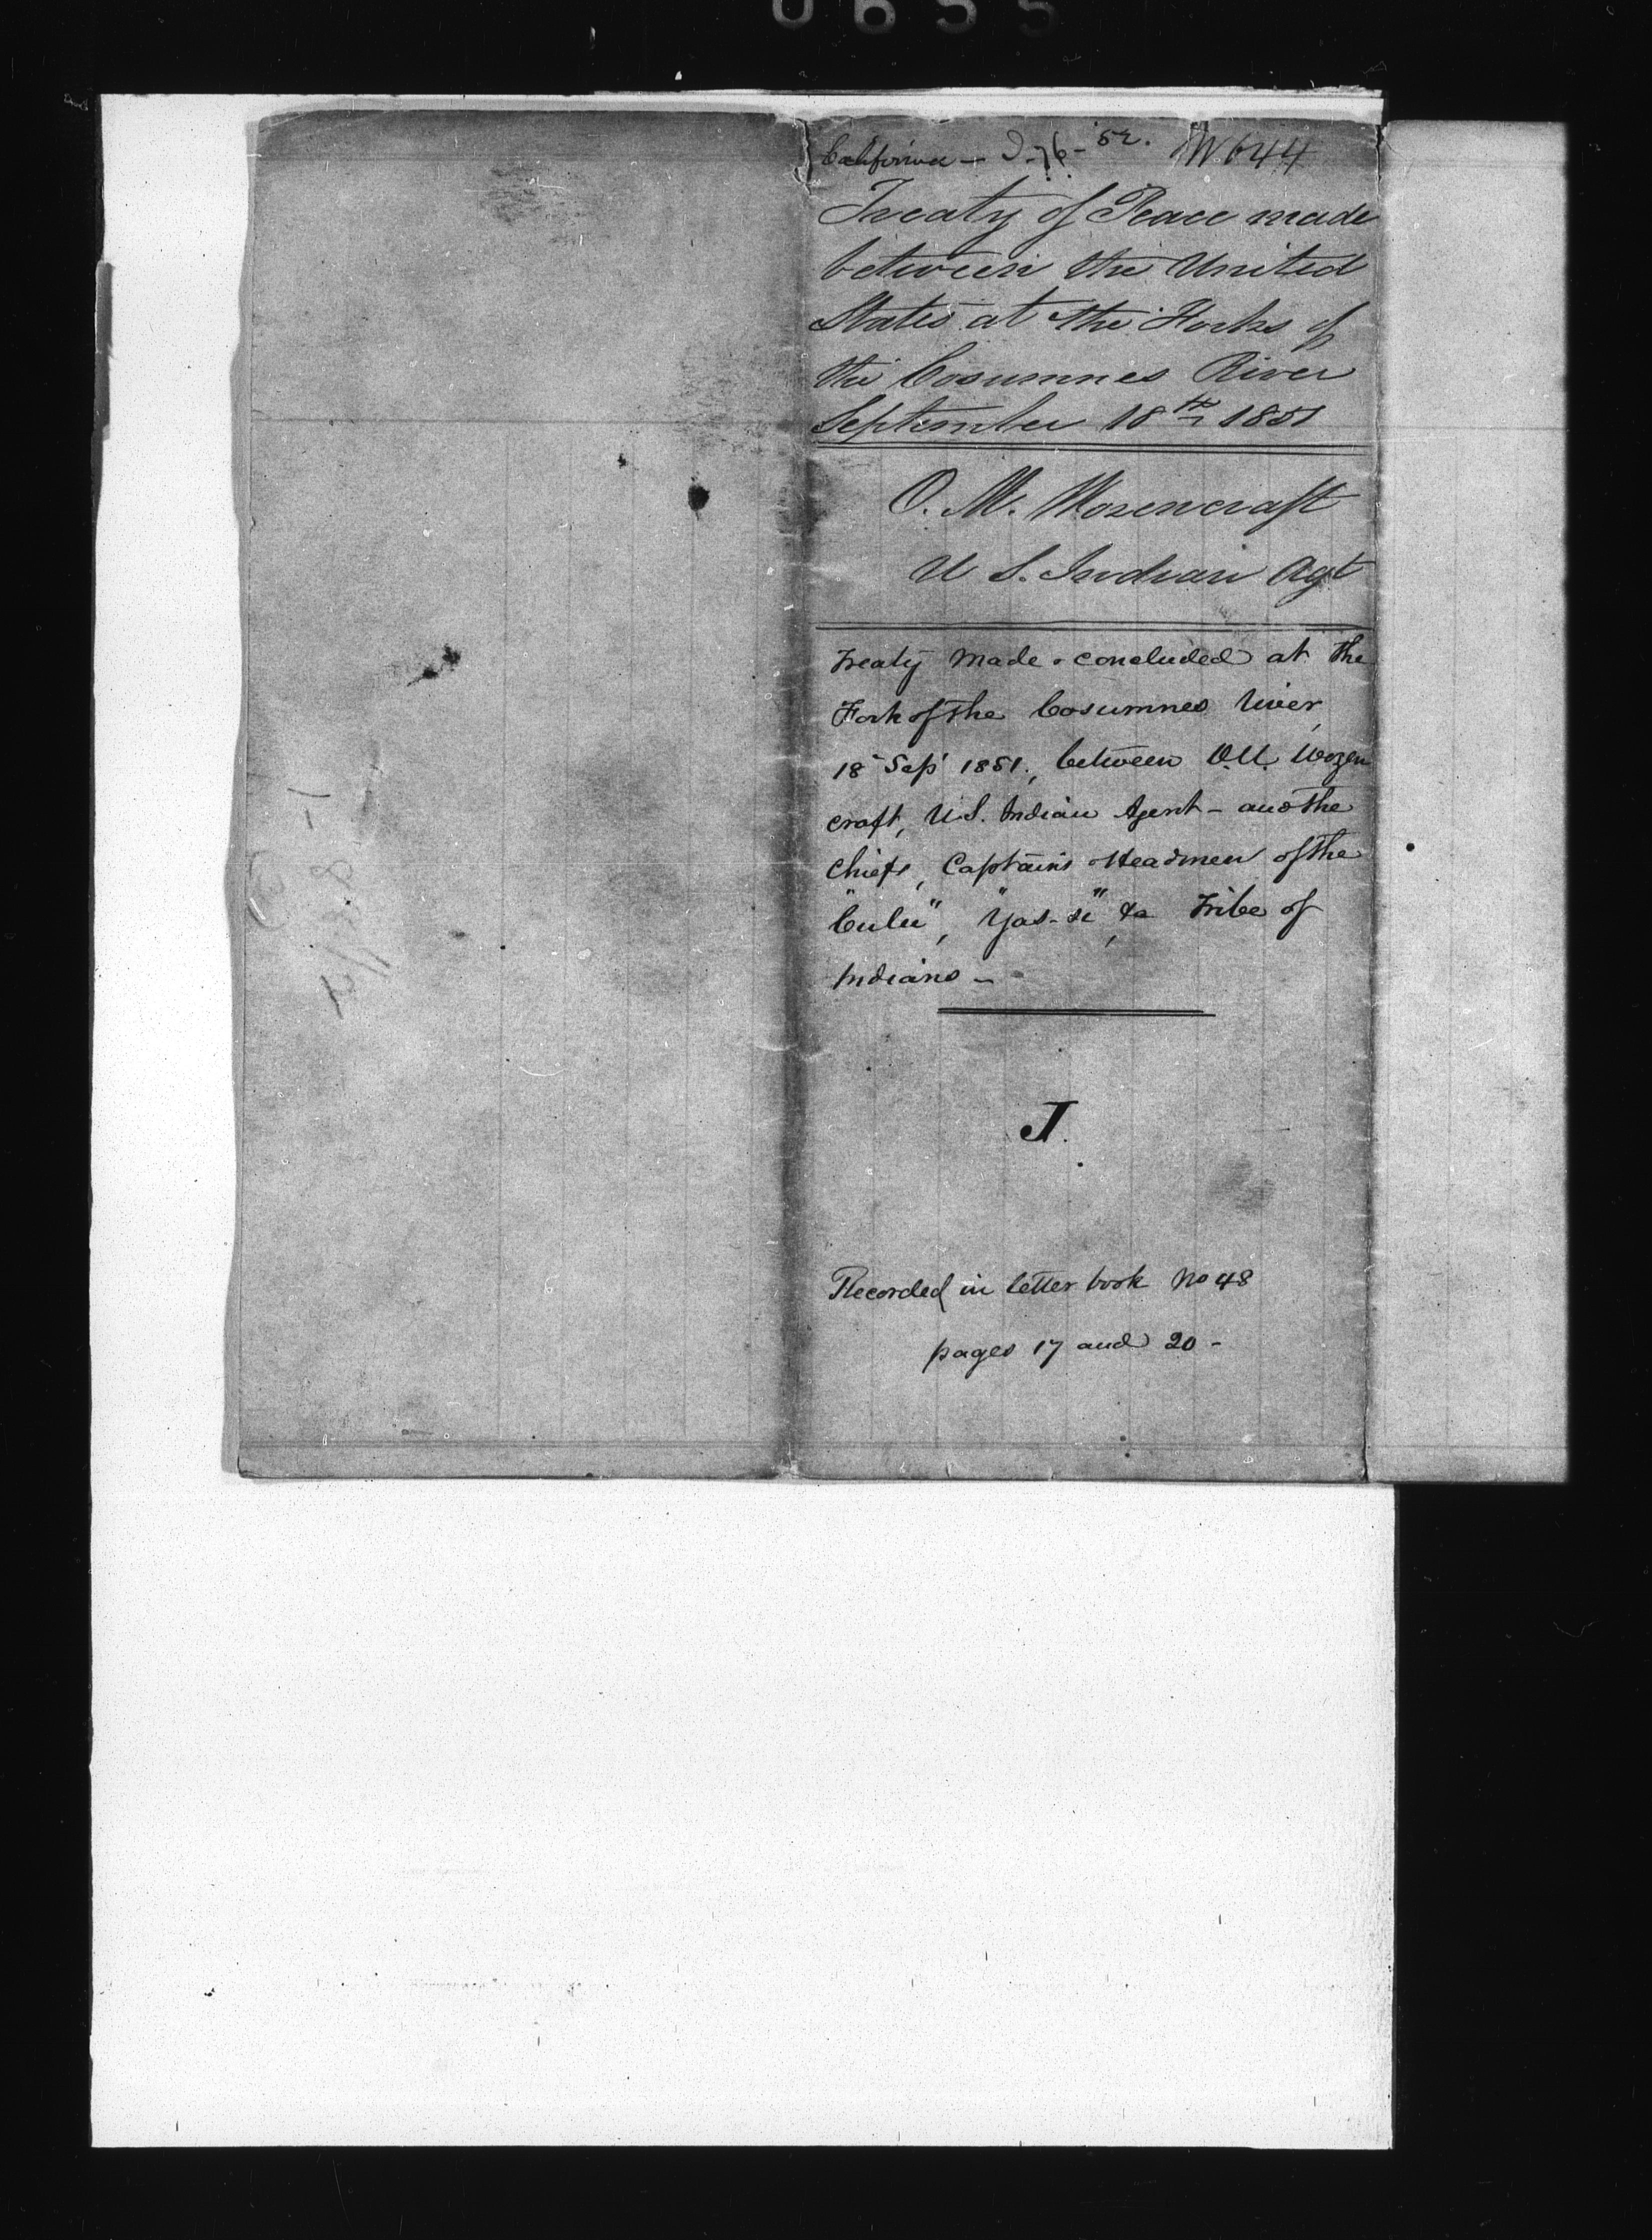 California - I-76-'52. W644
Treaty of Peace made
between the United
States at the Forks of
the Cosumnes River
September 18th 1851
O. M. Wozencraft
U S. Indian Agt
Treaty made & concluded at the
Fork of the Cosumnes river,
18 Sep 1851., between O.M. Wozen
craft, U.S. Indian Agent - and the
Chiefs, Captains & Headmen of the
"Culu", "Yas-si", &a Tribe of
Indians -
J.
Recorded in letter book No 48
pages 17 and 20 -